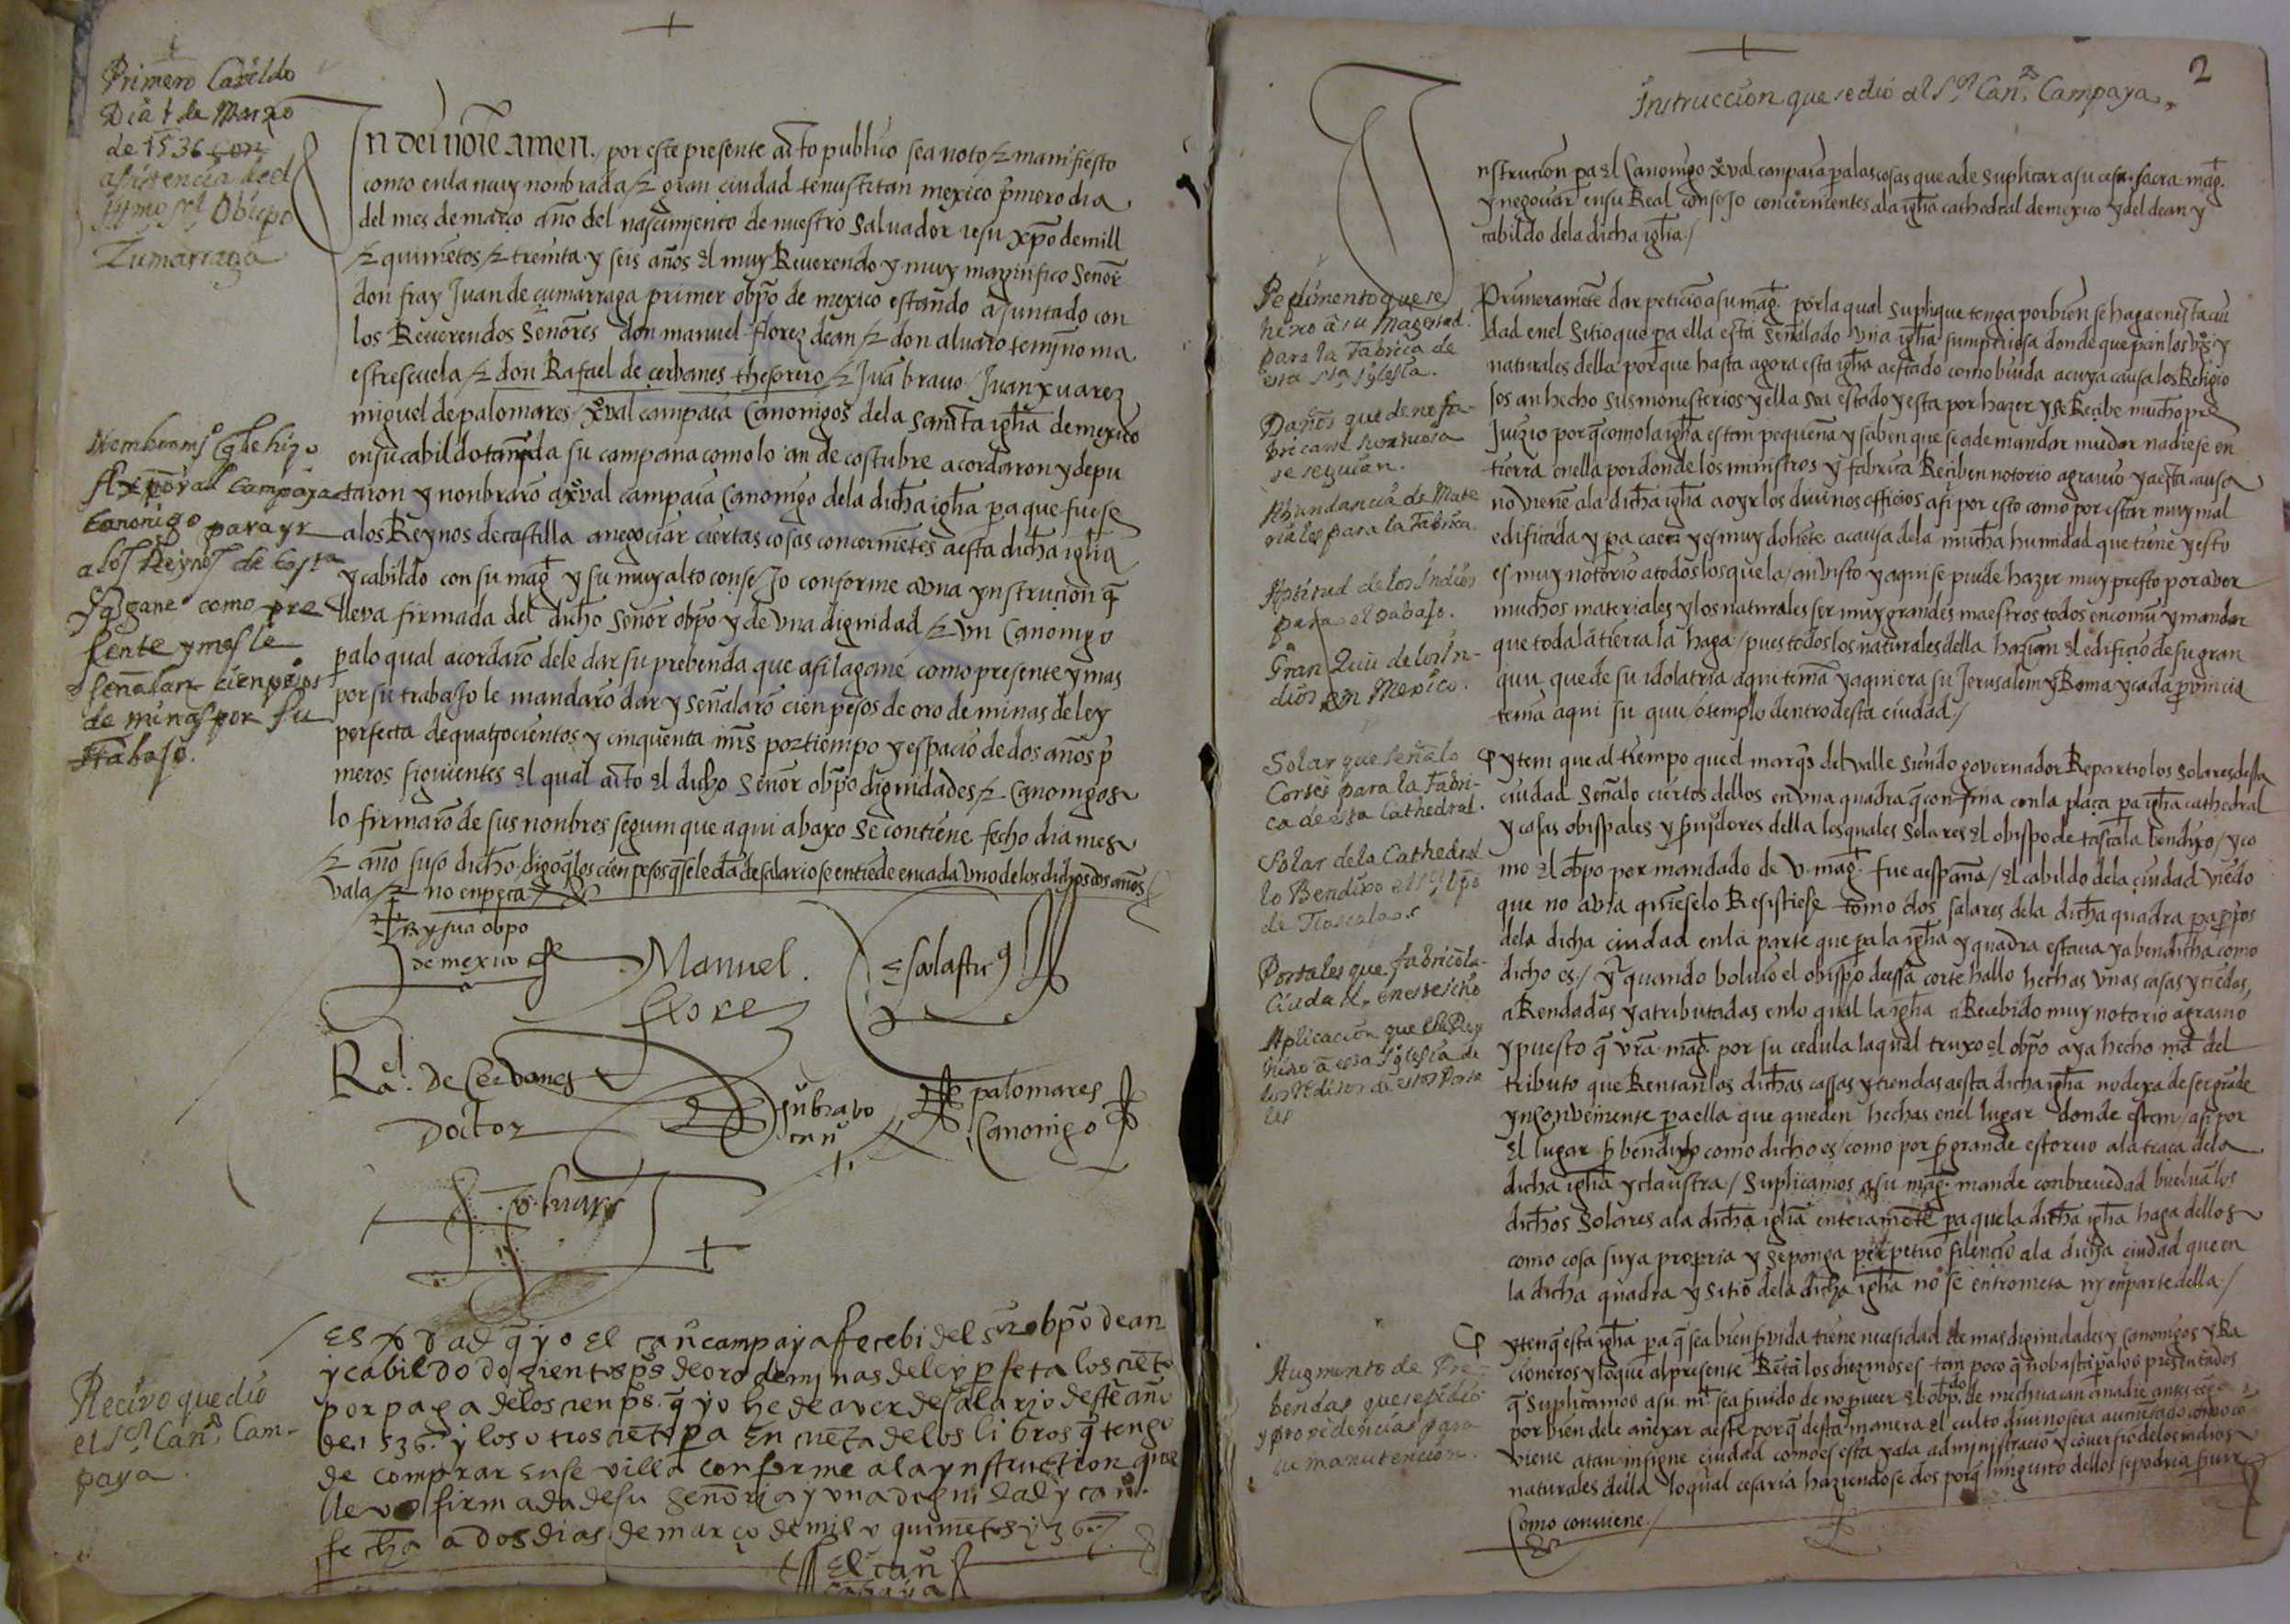 Primero Cavildo
Dia 1 de Marzo
de 1536 con
asistencia del
Yllmo Sor Obispo
Zumarraga
In dei noīe amen. por este presente aucto publico sea noto & manifiesto
como en la muy nonbrada & gran ciudad tenustitan mexico pmero dia
del mes de março año del nascimiento de nuestro salvador iesu xpo de mill
& quinietos & treinta y seis años el muy Reverendo y muy magnifico señor
don fray Juan de çumarraga primer obpo de mexico estando ajuntado con
los Reverendos señores don manuel florez dean & don alvaro temiño ma
estrescuela & don Rafael de cervanes thesorero & Juā bravo Juan xuarez
miguel de palomares xoval campaia canonigos dela sancta iglia de mexico
en su cabildo tañida su campana como lo an de costubre acordaron y depu
taron y nonbraro a xoval campaia canonigo dela dicha iglia pa que fuese
alos Reynos de castilla a negociar ciertas cosas concernietes a esta dicha iglia
y cabildo con su mag. y su muy alto consejo conforme a una ynstrucion q̄
lleva firmada del dicho señor obpo y de una dignidad & un canonigo
pa lo qual acordaro dele dar su prebenda que asi la gane como presente y mas
por su trabajo le mandaro dar y señalaro cien pesos de oro de minas de ley
perfecta de quatrocientos y cinquenta mrs por tiempo y espacio de dos años p
meros siguientes el qual aucto el dicho señor obpo dignidades & canonigos
lo firmaro de sus nonbres segun que aqui abaxo se contiene fecho dia mes
& año suso dicho digo q̄ los cien pesos q̄ se le da de salario se entiede en cada uno de los dichos dos años
vala & no enpeça
Nombramto q̄ le hizo
al xpoval Campaya
Canonigo para yr
a los Reynos de Castª
y q̄ gane como pre
sente y mas le
señalan cien pesos
de minas por su
trabajo.
fray jua obpo
de mexico
Manuel
florez
Escolasticº
Rael. De Cervanes
Doctor
Jū bravo
canº
palomares
Canonigo
Jo. xuarez
Es Vdad q̄ yo El canº campaya Recebi del sor obpo dean
y cabildo dozientos ps de oro de minas de ley pfeta los cieto
por paga delos cien ps. q̄ yo he de aver de salario deste año
de 1536. y los otros cieto pa En cueta delos libros q̄ tengo
de comprar en sevilla conforme a la ynstruction que
llevo firmada de su señoria y una dignidad y canº.
fecha a dos dias de março de mil y quinietos y 36.
El canº
campaya
Recivo que dio
el Sor Canº Cam-
paya.
2
Instruccion que se dio al Sor Canº Campaya.
Instrucion pa el Canonigo xoval canpaia pa las cosas que a de suplicar a su cesa. sacra mag.
y negociar en su Real consejo concernientes ala iglia cathedral de mexico y del dean y
cabildo dela dicha iglia
Pedimento que se
hizo â su Magestad.
para la Fabrica de
esta Sta Yglesia.
Daños que de no fa-
bricarse sumtuosa
se seguian.
Abundancia de Mate
riales para la Fabrica.
Aptitud de los Indios
para el trabajo.
Gran Quu de los In-
dios en Mexico.
Primeramete dar peticio a su mag. por la qual suplique tenga por bien se haga en esta ciu
dad en el sitio que pa ella esta señalado una iglia sumptuosa donde quepan los vos y
naturales della por que hasta agora esta iglia a estado como biuda a cuya causa los Religio
sos an hecho sus monesterios y ella sea estado y esta por hazer y se Recibe mucho pre
Juizio por q̄ como la iglia es tan pequeña y saben que se a de mandar mudar nadie se en
tierra en ella por donde los ministros y fabrica Reciben notorio agravio y a esta causa
no viene ala dicha iglia a oyr los divinos officios asi por esto como por estar muy mal
edificada y pa caer y es muy doliete a causa dela mucha humidad que tiene y esto
es muy notorio a todos los que la an visto y aqui se puede hazer muy presto por aver
muchos materiales y los naturales ser muy grandes maestros todos en comū y mandar
que toda la tierra la haga pues todos los naturales della hazian el edificio de su gran
quu que de su idolatria aqui tenia y aqui era su Jerusalem y Roma y cada provincia
tenia aqui su quu o templo dentro desta ciudad
Solar que señalo
Cortés para la Fabri-
ca de esta Cathedral.
Solar de la Cathedral
lo Bendixo el Sr Obpo
de Tlascala.
Portales que fabricó la
Ciudad, en este sitio
Aplicacion que el Rey
hizo â esta Yglesia de
los reditos de estos Porta
les
ytem que al tiempo qued marqs del valle siendo governador Repartio los solares desta
ciudad señalo ciertos dellos en una quadra q̄ confina con la plaça pa iglia cathedral
y casas obispales y suidores della los quales solares el obispo de tascala bendixo y co
mo el obpo por mandado de v. mag. fue a españa el cabildo dela ciudad viedo
que no avia quie selo Resistiese tomo dos solares dela dicha quadra pa ppos
dela dicha ciudad en la parte que pa la iglia y quadra estava ya bendicha como
dicho es. y quando bolvio el obispo dessa corte hallo hechas unas casas y tiedas
aRendadas y atributadas en lo qual la iglia a Recebido muy notorio agravio
y puesto q̄ vra mag. por su cedula la qual truxo el obpo aya hecho md del
tributo que Rentan las dichas cassas y tiendas a esta dicha iglia no dexa de ser grade
ynconveniente pa ella que queden hechas en el lugar donde estan asi por
el lugar ser bendito como dicho es como por ser grande estorvo ala traça dela
dicha iglia y claustra Suplicamos a su mag. mande con brevedad buelva los
dichos solares ala dicha iglia enteramete pa que la dicha iglia haga dellos
como cosa suya propria y se ponga perpetuo silencio ala dicha ciudad que en
la dicha quadra y sitio dela dicha iglia no se entrometa ny en parte della
Augmento de Pre-
bendas que se pidió
y providencias para
su manutencion.
yten q̄ esta iglia pa q̄ sea bien suida tiene necesidad de mas dignidades y canonigos y Ra
cioneros y lo que al presente Reta los diezmos es tan poco q̄ no basta pa los presentados
q̄ suplicamos a su mt sea suido de no proveer el obpdo de mechuacan a nadie antes tega
por bien dele anexar a este por q̄ desta manera el culto divino sera aumetado como co
viene a tan insigne ciudad como es esta y ala administracio y coversio delos indios
naturales della lo qual cesaria haziendose dos porq̄ ninguno dellos se podria suir
Como conviene.